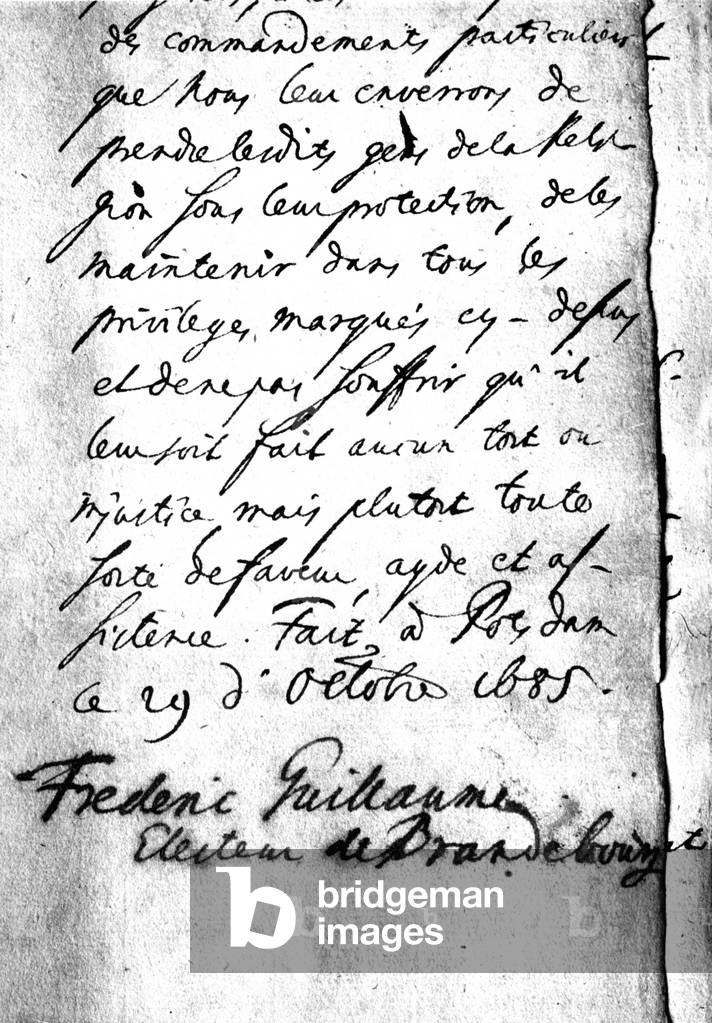 des commandements particuliers
que Nous leur enverrons de
prendre lesdits gens de la Reli
gion sous leur protection, de les
maintenir dans tous les
privileges marqués cy-dessus
et de ne pas souffrir qu'il
leur soit fait aucun tort ou
injustice mais plutost toute
sorte de faveur, ayde et as-
sistence. Fait à Potsdam
ce 29 d'Octobre 1685.
Frederic Guillaume
Electeur de Brandebourg
b bridgeman
images